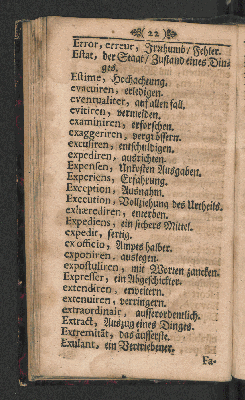 22
Error, erreur, Irꝛthumb/ Fehler.
Estat, der Staat/ Zustand eines Din-
ges.
Estime, Hochachtung.
evacuiren, erledigen.
eventualiter, auf allen fall.
evitiren, vermeiden.
examiniren, erforschen.
exaggeriren, vergrössern.
excusiren, entschuldigen.
expediren, ausrichten.
Expensen, Unkosten Ausgaben.
Experiens, Erfahrung.
Exception, Ausnahm.
Execution, Vollziehung des Urtheils.
exhærediren, enterben.
Expediens, ein sichers Mittel.
expedit, fertig.
ex officio, Ampts halber.
exponiren, auslegen.
expostuliren, mit Worten zancken.
Expresser, ein Abgeschickter.
extendiren, erweitern.
extenuiren, verringern.
extraordinair, ausserordentlich.
Extract, Auszug eines Dinges.
Extremität, das äusserste.
Exulant, ein Vertriebener.
Fa-